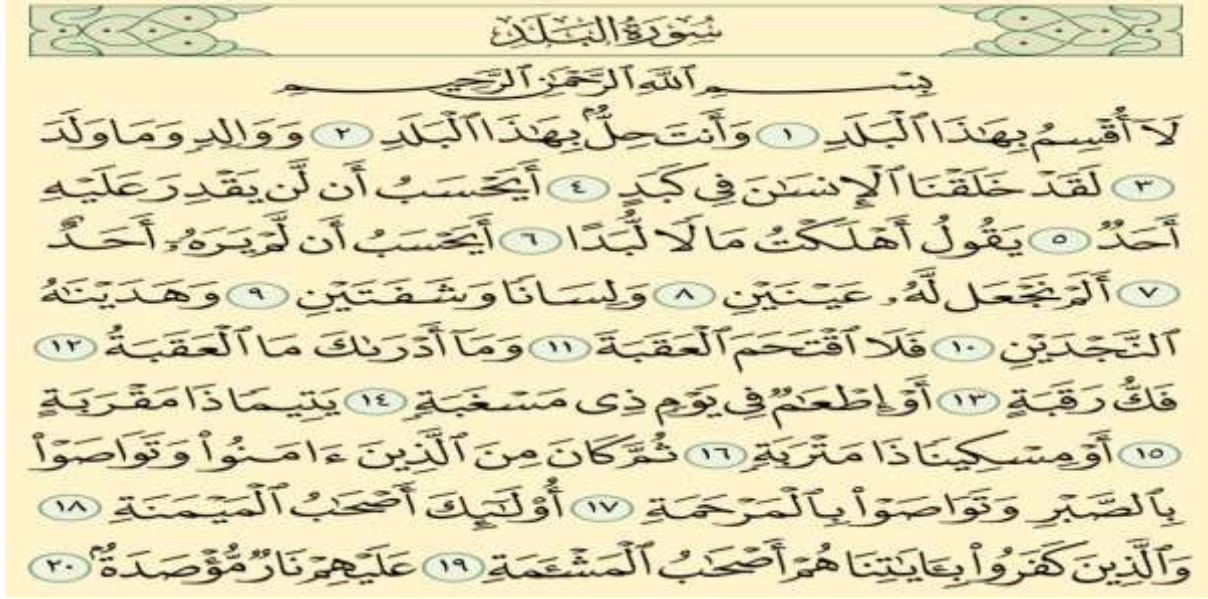 سُورَةُ الْبَلَدِ
بِسْمِ ٱللَّهِ ٱلرَّحْمَٰنِ ٱلرَّحِيمِ
لَآ أُقْسِمُ بِهَٰذَا ٱلْبَلَدِ ١ وَأَنتَ حِلٌّۢ بِهَٰذَا ٱلْبَلَدِ ٢ وَوَالِدٍ وَمَا وَلَدَ
٣ لَقَدْ خَلَقْنَا ٱلْإِنسَٰنَ فِي كَبَدٍ ٤ أَيَحْسَبُ أَن لَّن يَقْدِرَ عَلَيْهِ
أَحَدٌ ٥ يَقُولُ أَهْلَكْتُ مَالًا لُّبَدًا ٦ أَيَحْسَبُ أَن لَّمْ يَرَهُۥٓ أَحَدٌ
٧ أَلَمْ نَجْعَل لَّهُۥ عَيْنَيْنِ ٨ وَلِسَانًا وَشَفَتَيْنِ ٩ وَهَدَيْنَٰهُ
ٱلنَّجْدَيْنِ ١٠ فَلَا ٱقْتَحَمَ ٱلْعَقَبَةَ ١١ وَمَآ أَدْرَىٰكَ مَا ٱلْعَقَبَةُ ١٢
فَكُّ رَقَبَةٍ ١٣ أَوْ إِطْعَٰمٌ فِي يَوْمٍ ذِي مَسْغَبَةٍ ١٤ يَتِيمًا ذَا مَقْرَبَةٍ
١٥ أَوْ مِسْكِينًا ذَا مَتْرَبَةٍ ١٦ ثُمَّ كَانَ مِنَ ٱلَّذِينَ ءَامَنُوا۟ وَتَوَاصَوْا۟
بِٱلصَّبْرِ وَتَوَاصَوْا۟ بِٱلْمَرْحَمَةِ ١٧ أُو۟لَٰٓئِكَ أَصْحَٰبُ ٱلْمَيْمَنَةِ ١٨
وَٱلَّذِينَ كَفَرُوا۟ بِـَٔايَٰتِنَا هُمْ أَصْحَٰبُ ٱلْمَشْـَٔمَةِ ١٩ عَلَيْهِمْ نَارٌ مُّؤْصَدَةٌۢ ٢٠